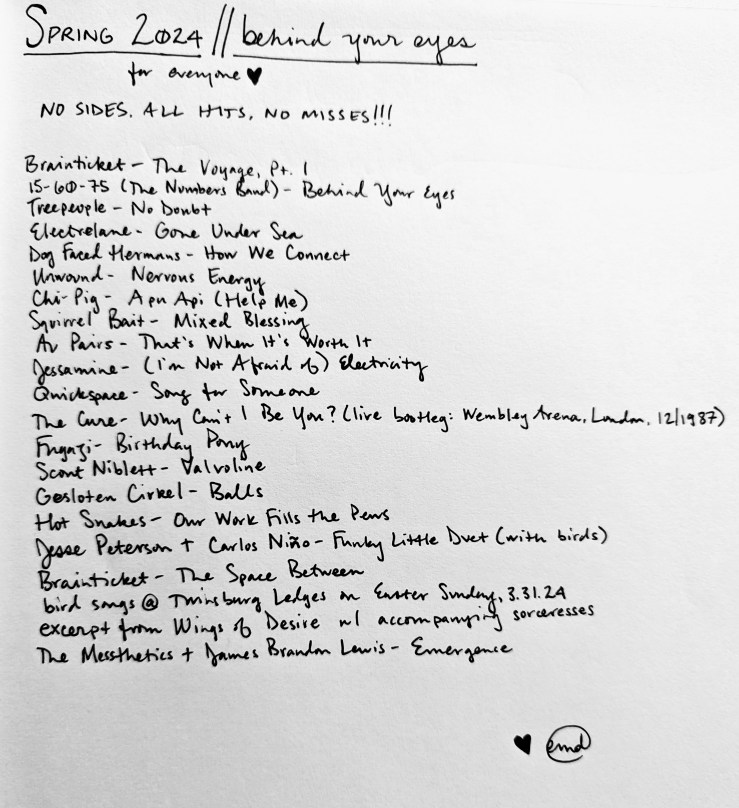 SPRING 2024 // behind your eyes
for everyone ♥
NO SIDES. ALL HITS, NO MISSES!!!
Brainticket - The Voyage, Pt. 1
15-60-75 (The Numbers Band) - Behind Your Eyes
Treepeople - No Doubt
Electrelane - Gone Under Sea
Dog Faced Hermans - How We Connect
Unwound - Nervous Energy
Chi-Pig - Apu Api (Help Me)
Squirrel Bait - Mixed Blessing
Au Pairs - That's When It's Worth It
Jessamine - (I'm Not Afraid of) Electricity
Quickspace - Song for Someone
The Cure - Why Can't I Be You? (live bootleg: Wembley Arena, London, 12/1987)
Fugazi - Birthday Pony
Scout Niblett - Valvoline
Gesloten Cirkel - Balls
Hot Snakes - Our Work Fills the Pews
Jesse Peterson + Carlos Niño - Funky Little Duet (with birds)
Brainticket - The Space Between
bird songs @ Twinsburg Ledges on Easter Sunday, 3.31.24
excerpt from Wings of Desire w/ accompanying sorceresses
The Messthetics + James Brandon Lewis - Emergence
♥ emd